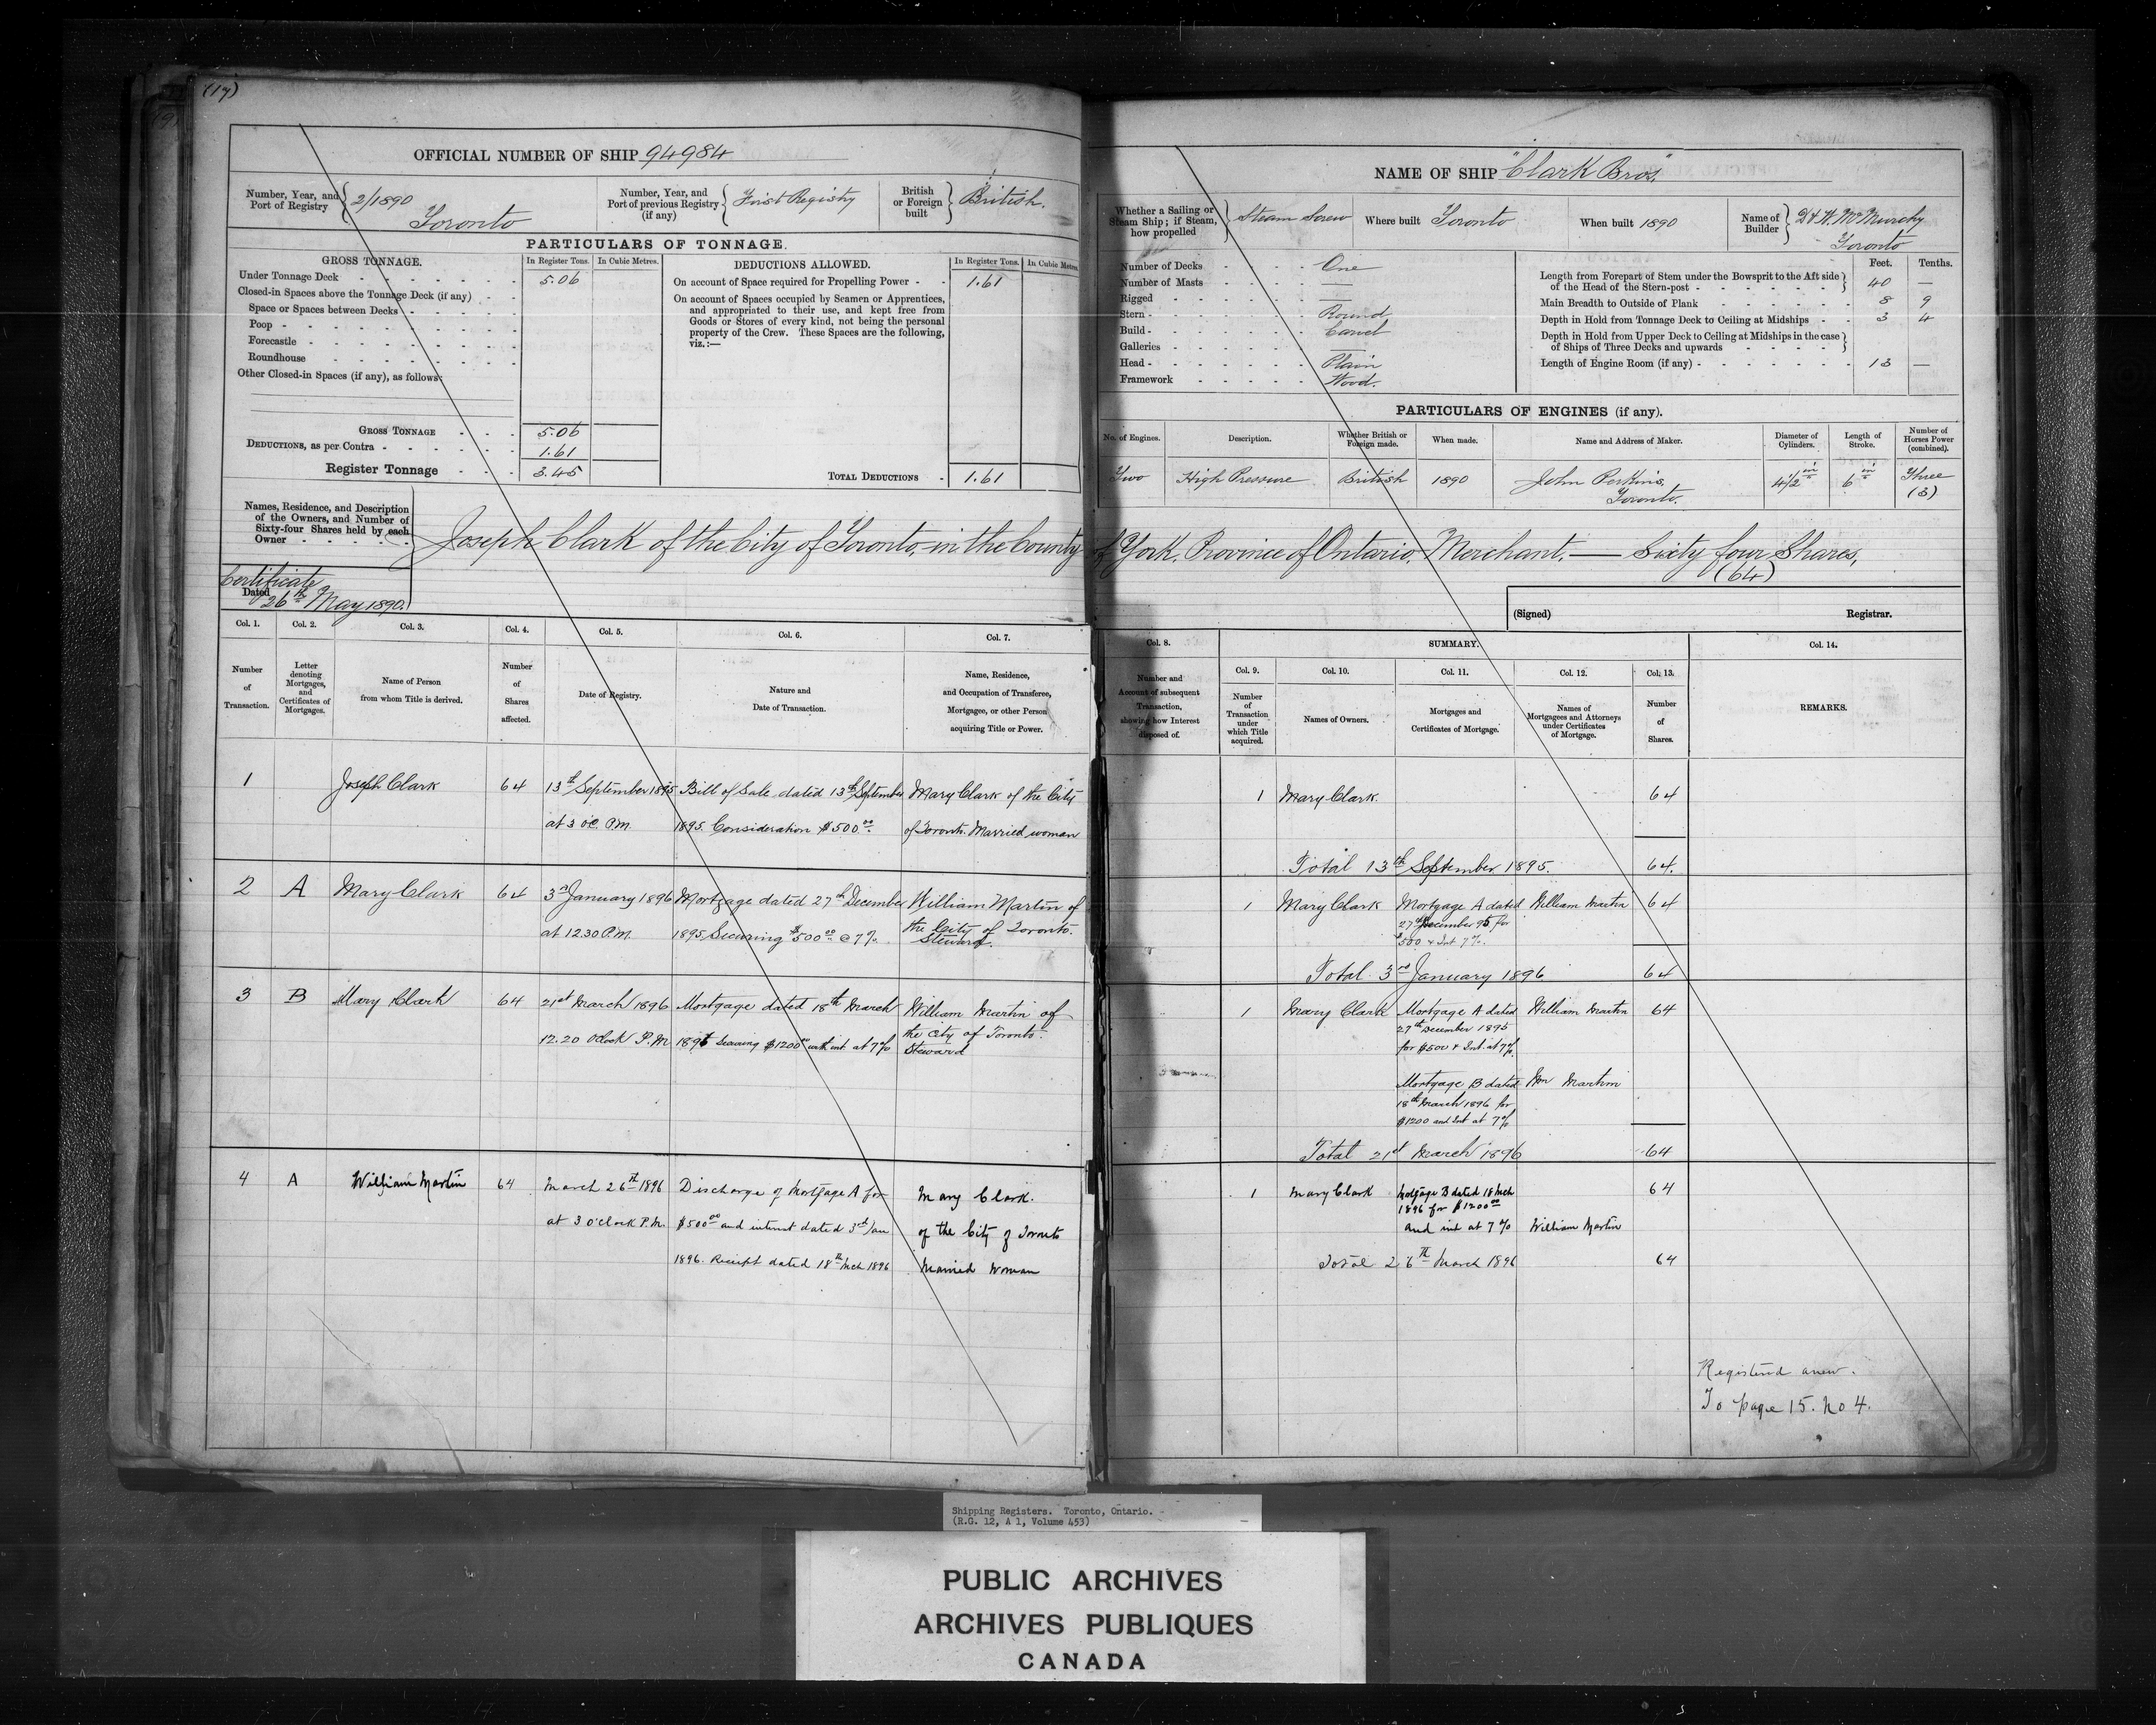 (17)
OFFICIAL NUMBER OF SHIP 94984
Number, Year, and Port of Registry 2/1890 Toronto
Number, Year, and Port of previous Registry (if any) First Registry
British or Foreign built British.
PARTICULARS OF TONNAGE.
GROSS TONNAGE. In Register Tons. In Cubic Metres.
Under Tonnage Deck 5.06
Closed-in Spaces above the Tonnage Deck (if any)
Space or Spaces between Decks
Poop
Forecastle
Roundhouse
Other Closed-in Spaces (if any), as follows:
GROSS TONNAGE 5.06
DEDUCTIONS, as per Contra 1.61
Register Tonnage 3.45
DEDUCTIONS ALLOWED. In Register Tons. In Cubic Metres.
On account of Space required for Propelling Power 1.61
On account of Spaces occupied by Seamen or Apprentices,
and appropriated to their use, and kept free from
Goods or Stores of every kind, not being the personal
property of the Crew. These Spaces are the following,
viz.:—
TOTAL DEDUCTIONS 1.61
NAME OF SHIP "Clark Bros."
Whether a Sailing or Steam Ship; if Steam, how propelled Steam Screw
Where built Toronto
When built 1890
Name of Builder D & W. McMurchy Toronto
Number of Decks One
Number of Masts —
Rigged —
Stern Round
Build Carvel
Galleries —
Head Plain
Framework Wood.
Feet. Tenths.
Length from Forepart of Stem under the Bowsprit to the Aft side
of the Head of the Stern-post 40 —
Main Breadth to Outside of Plank 8 9
Depth in Hold from Tonnage Deck to Ceiling at Midships 3 4
Depth in Hold from Upper Deck to Ceiling at Midships in the case
of Ships of Three Decks and upwards
Length of Engine Room (if any) 13 —
PARTICULARS OF ENGINES (if any).
No. of Engines. Description. Whether British or Foreign made. When made. Name and Address of Maker. Diameter of Cylinders. Length of Stroke. Number of Horses Power (combined).
Two High Pressure British 1890 John Perkins, Toronto. 4 1/2 in 6 in Three (3)
Names, Residence, and Description
of the Owners, and Number of
Sixty-four Shares held by each
Owner
Joseph Clark of the City of Toronto, in the County of York, Province of Ontario, Merchant. — Sixty four Shares,
(64)
Certificate
Dated 26th May 1890.
(Signed) Registrar.
Col. 1. Col. 2. Col. 3. Col. 4. Col. 5. Col. 6. Col. 7.
Number of Transaction.
Letter denoting Mortgages, and Certificates of Mortgages.
Name of Person from whom Title is derived.
Number of Shares affected.
Date of Registry.
Nature and Date of Transaction.
Name, Residence, and Occupation of Transferee, Mortgagee, or other Person acquiring Title or Power.
Col. 8. SUMMARY. Col. 14.
Col. 9. Col. 10. Col. 11. Col. 12. Col. 13.
Number and Account of subsequent Transaction, showing how Interest disposed of.
Number of Transaction under which Title acquired.
Names of Owners.
Mortgages and Certificates of Mortgage.
Names of Mortgagees and Attorneys under Certificates of Mortgage.
Number of Shares.
REMARKS.
1 Joseph Clark 64 13th September 1895 Bill of Sale dated 13th September Mary Clark of the City
at 3 oC. P.M. 1895. Consideration $500 00 of Toronto. Married woman
1 Mary Clark. 64
Total 13th September 1895. 64.
2 A Mary Clark 64 3rd January 1896 Mortgage dated 27th December William Martin of
at 12.30 P.M. 1895 Securing $500 00 @ 7% the City of Toronto.
Steward.
1 Mary Clark Mortgage A dated William Martin 64
27th December 95 for
$500 & Int 7%.
Total 3rd January 1896 64
3 B Mary Clark 64 21st March 1896 Mortgage dated 18th March William Martin of
12.20 Oclock P.M 1896 Securing $1200 00 with int at 7% the City of Toronto.
Steward
1 Mary Clark Mortgage A dated William Martin 64
27th December 1895
for $500 & Int. at 7%.
Mortgage B dated Wm Martin
18th March 1896 for
$1200 and Int at 7%
Total 21st March 1896 64
4 A William Martin 64 March 26th 1896 Discharge of Mortgage A for Mary Clark.
at 3 o'clock P.M. $500 00 and interest dated 3rd Jan of the City of Toronto
1896. Receipt dated 18th Mch 1896 Married Woman
1 Mary Clark Mortgage B dated 18 Mch 64
1896 for $1200 00
and int at 7% William Martin
Total 26th March 1896 64
Registered anew.
To page 15. No 4.
Shipping Registers. Toronto, Ontario.
(R.G. 12, A 1, Volume 453)
PUBLIC ARCHIVES
ARCHIVES PUBLIQUES
CANADA